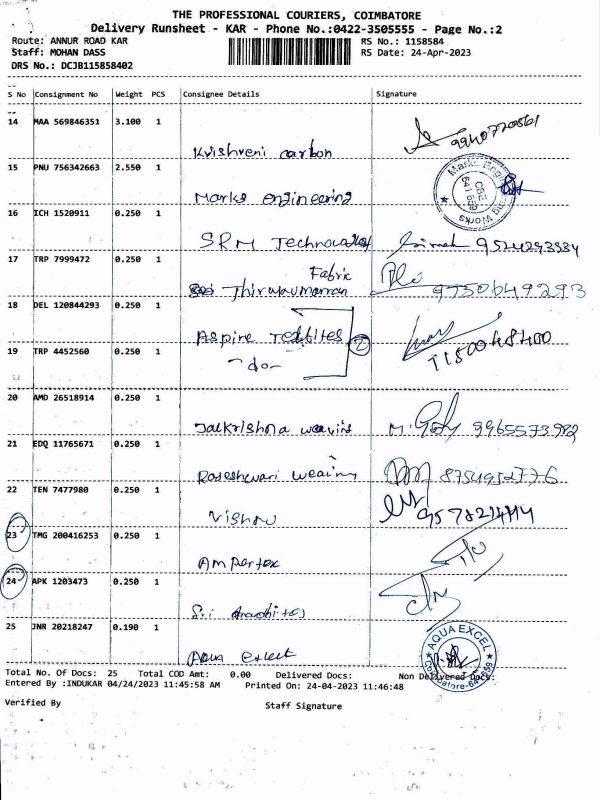 THE PROFESSIONAL COURIERS, COIMBATORE
Delivery Runsheet - KAR - Phone No.:0422-3505555 - Page No.:2
Route: ANNUR ROAD KAR RS No.: 1158584
Staff: MOHAN DASS RS Date: 24-Apr-2023
DRS No.: DCJB115858402
S No Consignment No Weight PCS Consignee Details Signature
14 MAA 569846351 3.100 1
Krishveni carbon
15 PNU 756342663 2.550 1
Marks engineering
16 ICH 1520911 0.250 1
SRM Technology 9524293984
17 TRP 7999472 0.250 1
Fabric
9750649293
18 DEL 120844293 0.250 1
Aspire
19 TRP 4452560 0.250 1
-do- 2
20 AMD 26518914 0.250 1
Jaikrishna 9965573982
21 EDQ 11765671 0.250 1
Rajeshwari 8754952776
22 TEN 7477980 0.250 1
Vishnu
23 TMG 200416253 0.250 1
Ampertex
24 APK 1203473 0.250 1
Sri
25 JNR 20218247 0.190 1
Aqua Excel
AQUA EXCEL
Total No. Of Docs: 25 Total COD Amt: 0.00 Delivered Docs: Non Delivered Docs:
Entered By :INDUKAR 04/24/2023 11:45:58 AM Printed On: 24-04-2023 11:46:48
Verified By Staff Signature